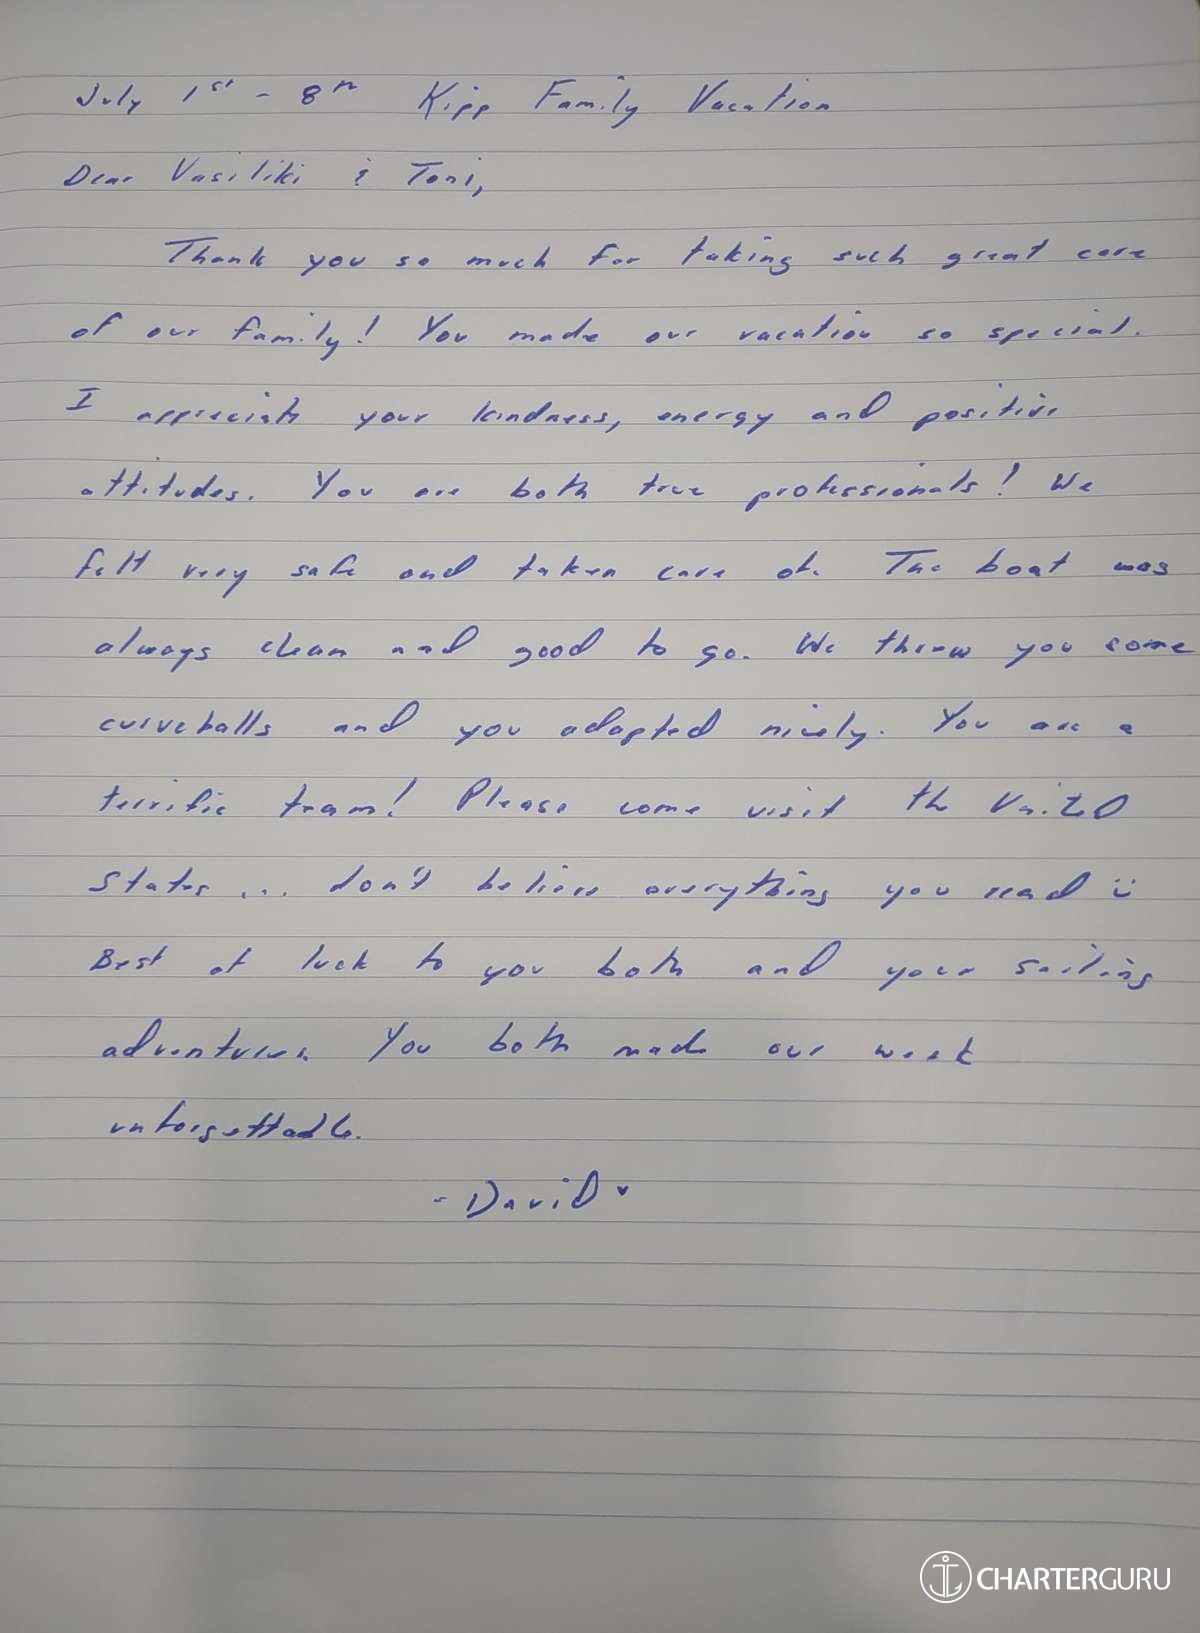 July 1st - 8th Kipp Family Vacation
Dear Vasiliki & Toni,
Thank you so much for taking such great care
of our family! You made our vacation so special.
I appreciate your kindness, energy and positive
attitudes. You are both true professionals! We
felt very safe and taken care of. The boat was
always clean and good to go. We threw you some
curveballs and you adapted nicely. You are a
terrific team! Please come visit the United
States ... don't believe everything you read ü
Best of luck to you both and your sailing
adventures. You both made our week
unforgettable.
- David ♥
CHARTERGURU